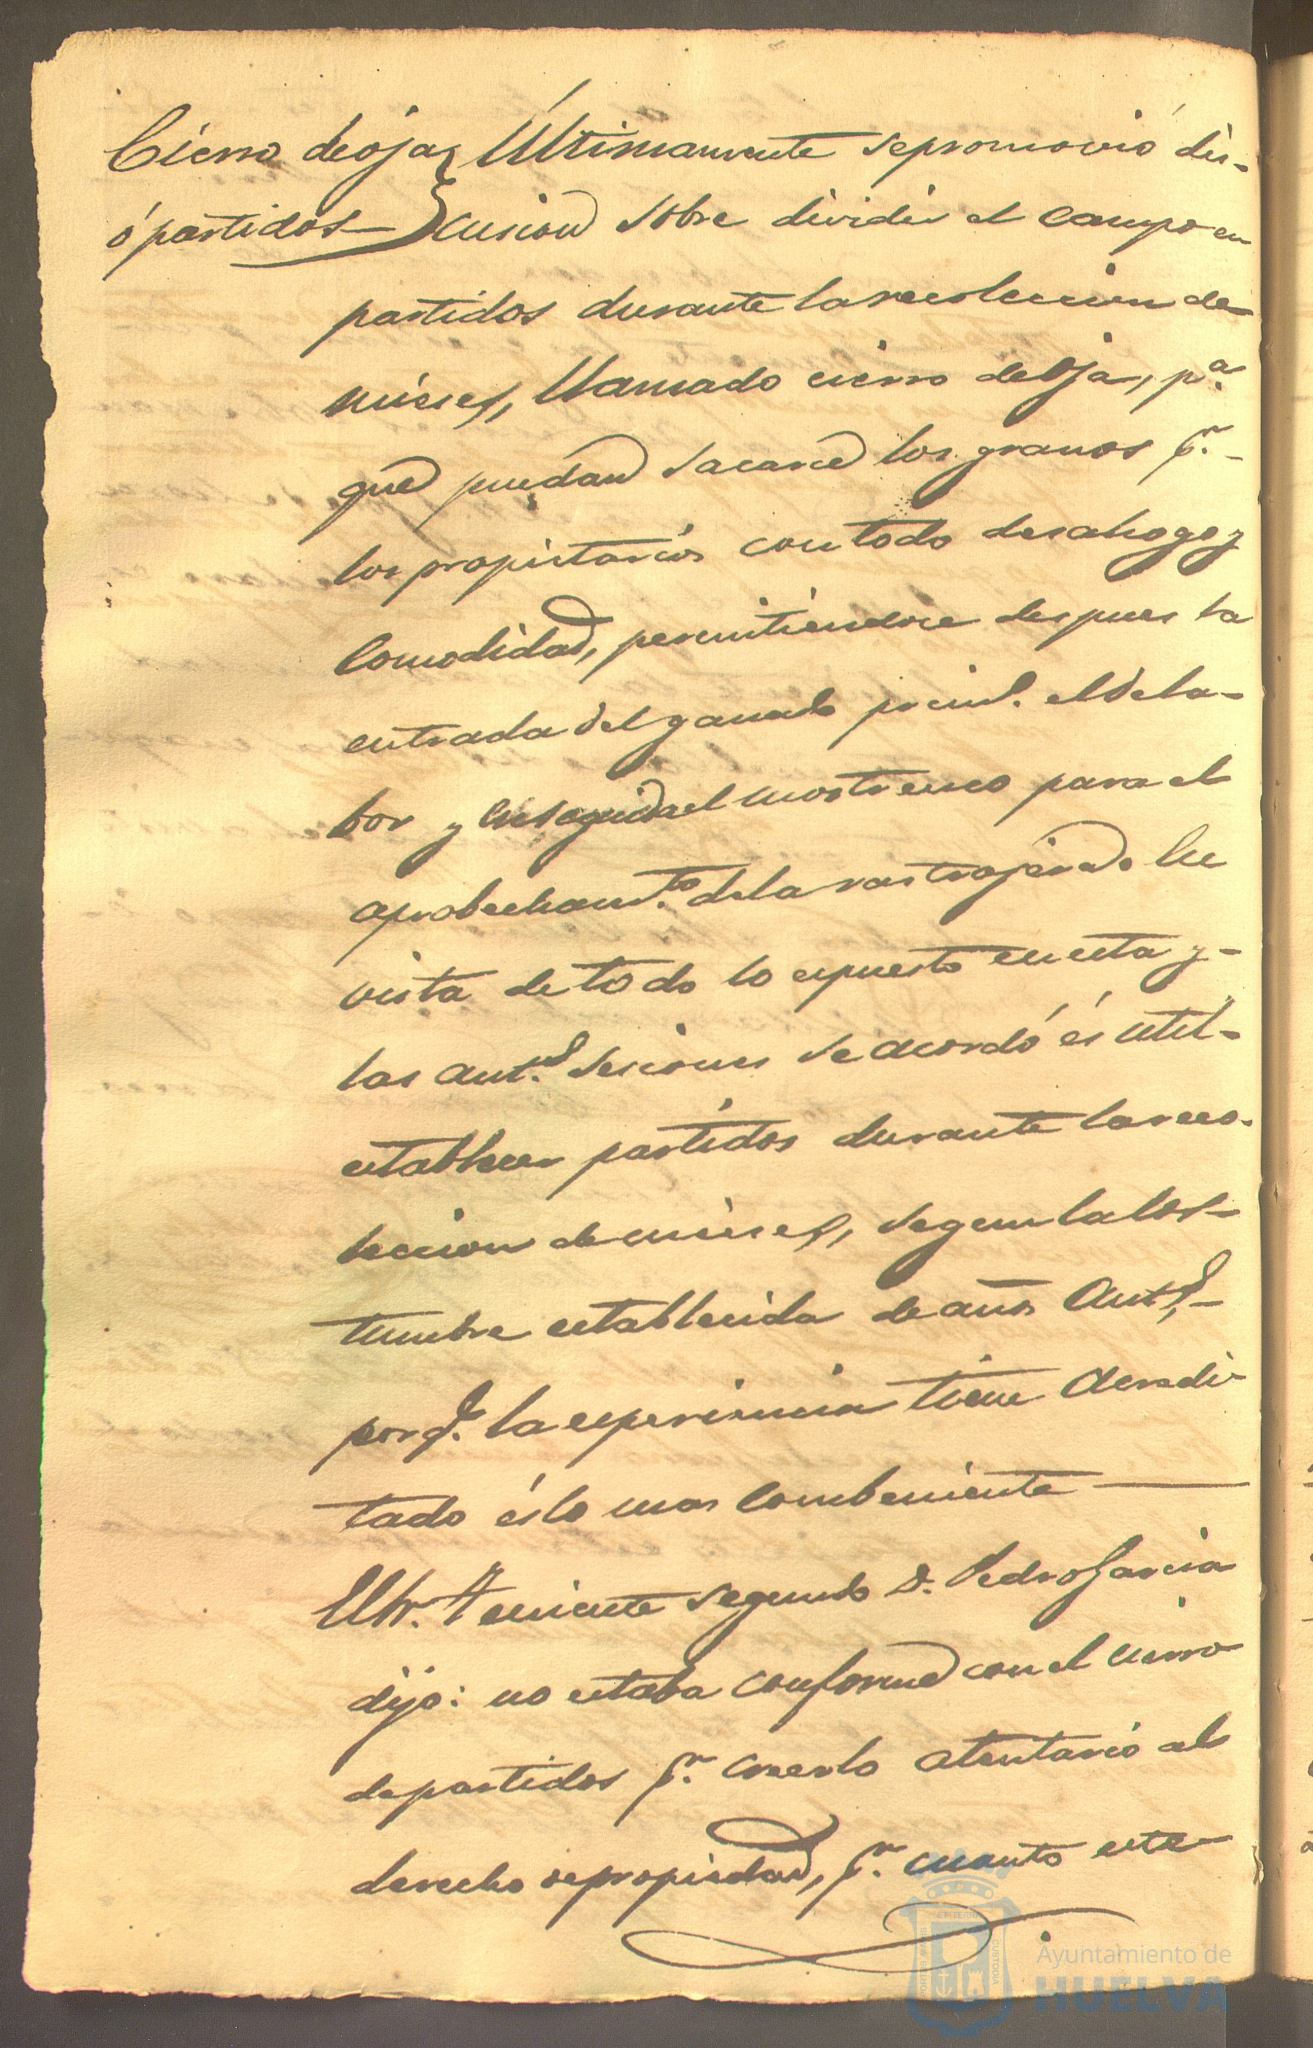 Cierro de oja
ó partidos
Ultimamente se promovió dis-
cusion sobre dividir el campo en
partidos durante la recoleccion de
mieses, llamado cierro de oja, pª.
que puedan sacarse los granos pr.
los propietarios con todo desahogo y
comodidad, permitiendose despues la
entrada del ganado princl. el de la-
bor y enseguida el mostrenco para el
aprobechamto. de la rastrojera. En
vista de todo lo espuesto en esta y
las ants. sesiones se acordó és util
establecer partidos durante la reco-
leccion de mieses, segun la cos-
tumbre establecida de años ants,
porq. la esperiencia tiene acredi-
tado és lo mas combeniente
El Sr. Teniente segundo D. Pedro Garcia
dijo: no estaba conforme con el cierro
de partidos pr. creerlo atentario al
derecho de propiedad, pr. cuanto este
Ayuntamiento de
HUELVA